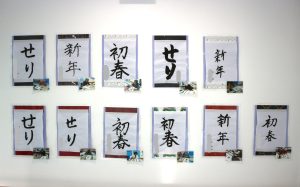 せり
新年
初春
せり
新年
せり
せり
初春
初春
新年
初春